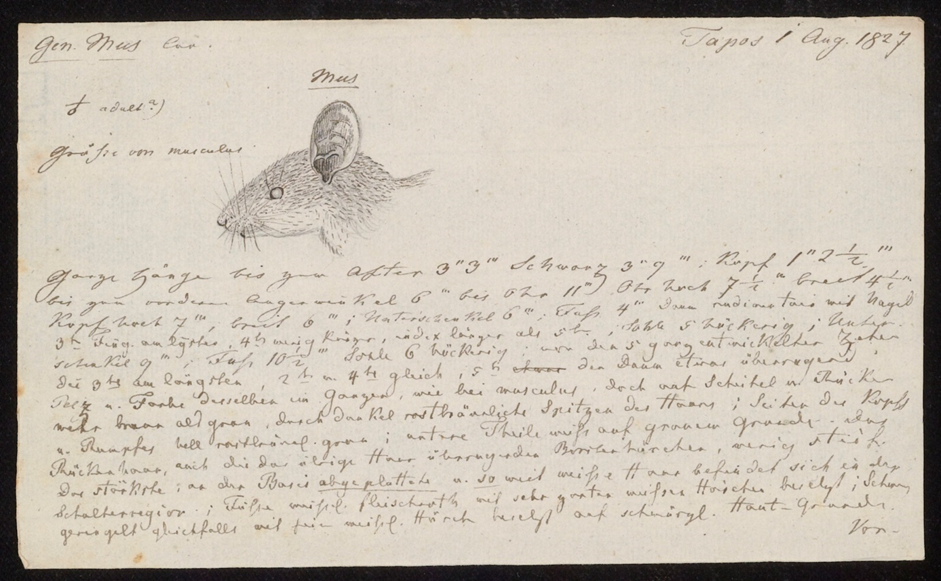 Gen. Mus Cuv.
Tapos 1 Aug. 1827
Mus
♂ adult ?)
Größe von musculus.
Ganze Länge bis zum After 3" 3"' Schwanz 3" 9"'; Kopf 1" 2 1/2"'
bis zum vordern Augenwinkel 6"' bis Ohr 11"') Ohr hoch 7 1/2"' breit 4 1/2"'
Kopf hoch 7"', breit 6"'; Unterschenkel 6"'; Fuss 4"' Daum rudimentair mit Nagel
3te Fing. am längsten, 4te wenig kürzer, index länger als 5te; Sohle 5 höckerig; Unter-
schenkel 9"'; Fuss 10 1/2"' Sohle 6 höckerig. von den 5 ganz entwickelten Zehen
die 3te am längsten, 2te u. 4te gleich, 5te den Daum etwas überragend
Pelz u. Farbe desselben im Ganzen, wie bei musculus, doch auf Scheitel u. Rücken
mehr braun als grau, durch dunkel rostbräunliche Spitzen des Haars; Seiten des Kopfs
u. Rumpfes hell rostbräunl. grau; untere Theile weiss auf grauem Grunde. das
Rückenhaar, auch die das übrige Haar überragenden Borstenhärchen, wenig steif.
Das stärkste, an der Basis abgeplattete u. so weit weisse Haar befindet sich in der
Schulterregion.; Füsse weissl. fleischroth mit sehr zarten weissen Härchen besetzt; Schwanz
geringelt gleichfalls mit fein weissl. Härch. besetzt auf schwärzl. Haut-Grunde.
Vor-